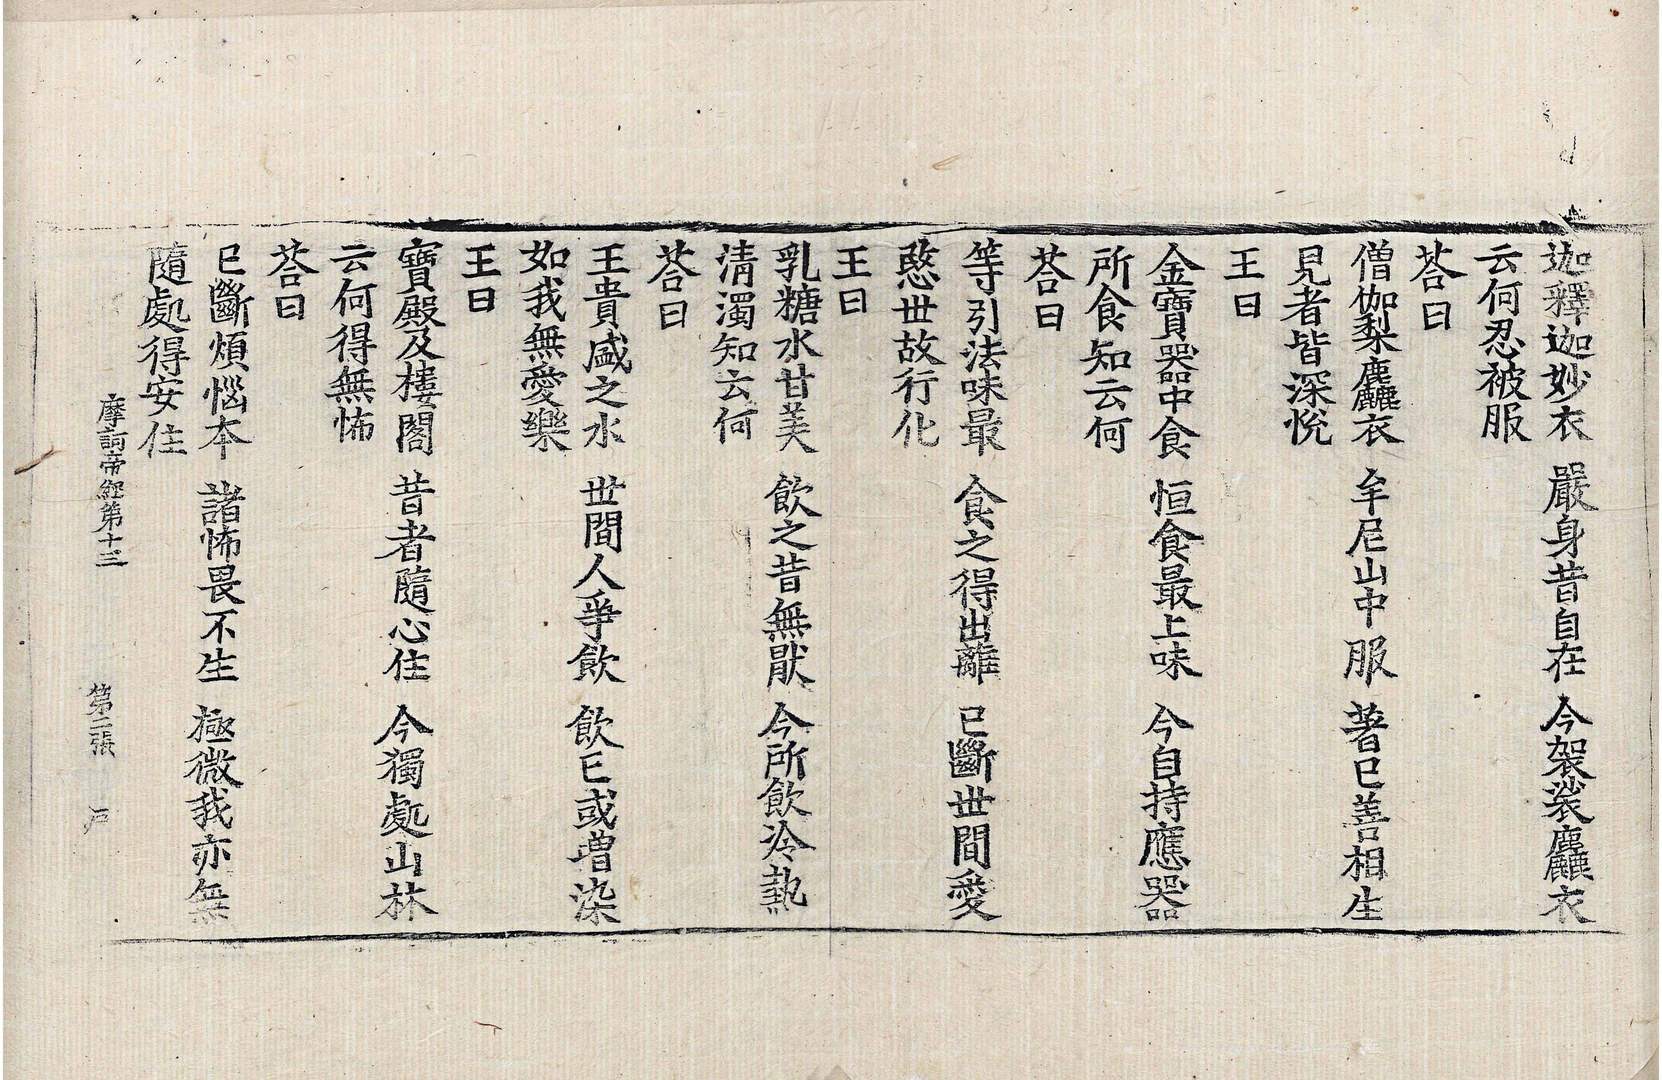 迦釋迦妙衣　嚴身昔自在　今袈裟麤衣
云何忍被服
荅曰
僧伽梨麤衣　牟尼山中服　著已善相生
見者皆深恱
王曰
金寶器中食　恒食最上味　今自持應器
所食知云何
荅曰
等引法味最　食之得出離　已斷世間愛
愍世故行化
王曰
乳糖水甘美　飲之昔無猒　今所飲冷熱
清濁知云何
荅曰
王貴盛之水　世間人爭飲　飲已或增染
如我無愛樂
王曰
寶殿及樓閣　昔者隨心住　今獨處山林
云何得無怖
荅曰
已斷煩惱本　諸怖畏不生　極微我亦無
隨處得安住
摩訶帝經第十三　第二張　戶